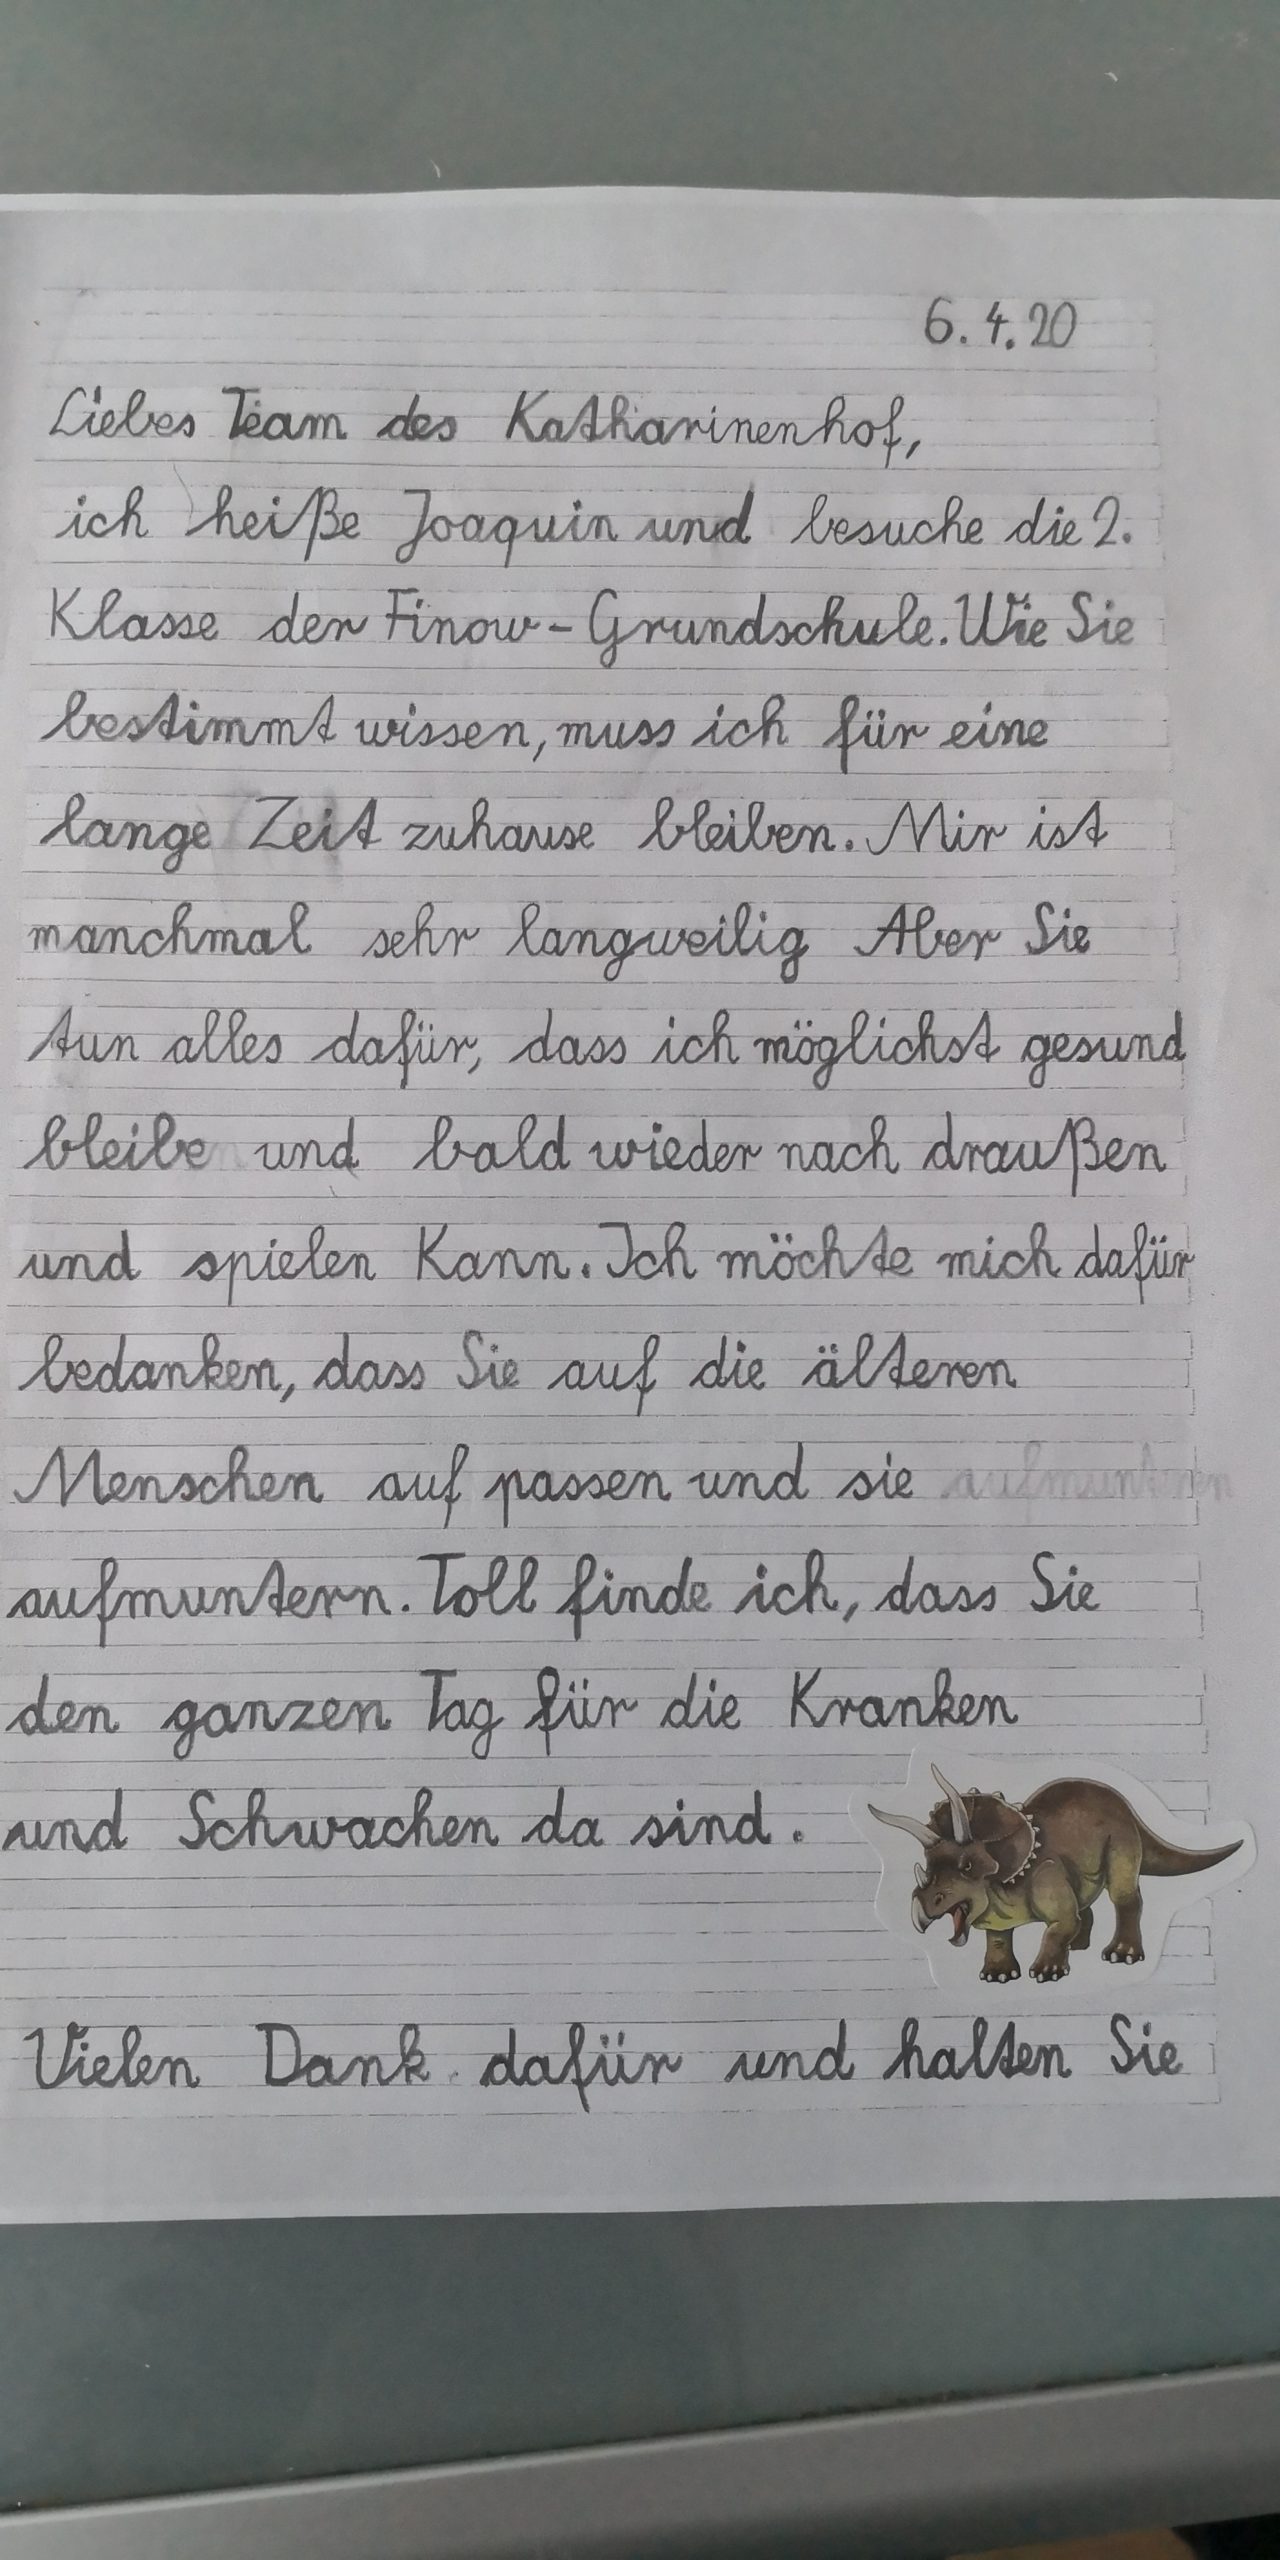 6. 4. 20
Liebes Team des Katharinenhof,
ich heiße Joaquin und besuche die 2.
Klasse der Finow-Grundschule. Wie Sie
bestimmt wissen, muss ich für eine
lange Zeit zuhause bleiben. Mir ist
manchmal sehr langweilig Aber Sie
tun alles dafür, dass ich möglichst gesund
bleibe und bald wieder nach draußen
und spielen Kann. Ich möchte mich dafür
bedanken, dass Sie auf die älteren
Menschen auf passen und sie
aufmuntern. Toll finde ich, dass Sie
den ganzen Tag für die Kranken
und Schwachen da sind.
Vielen Dank dafür und halten Sie